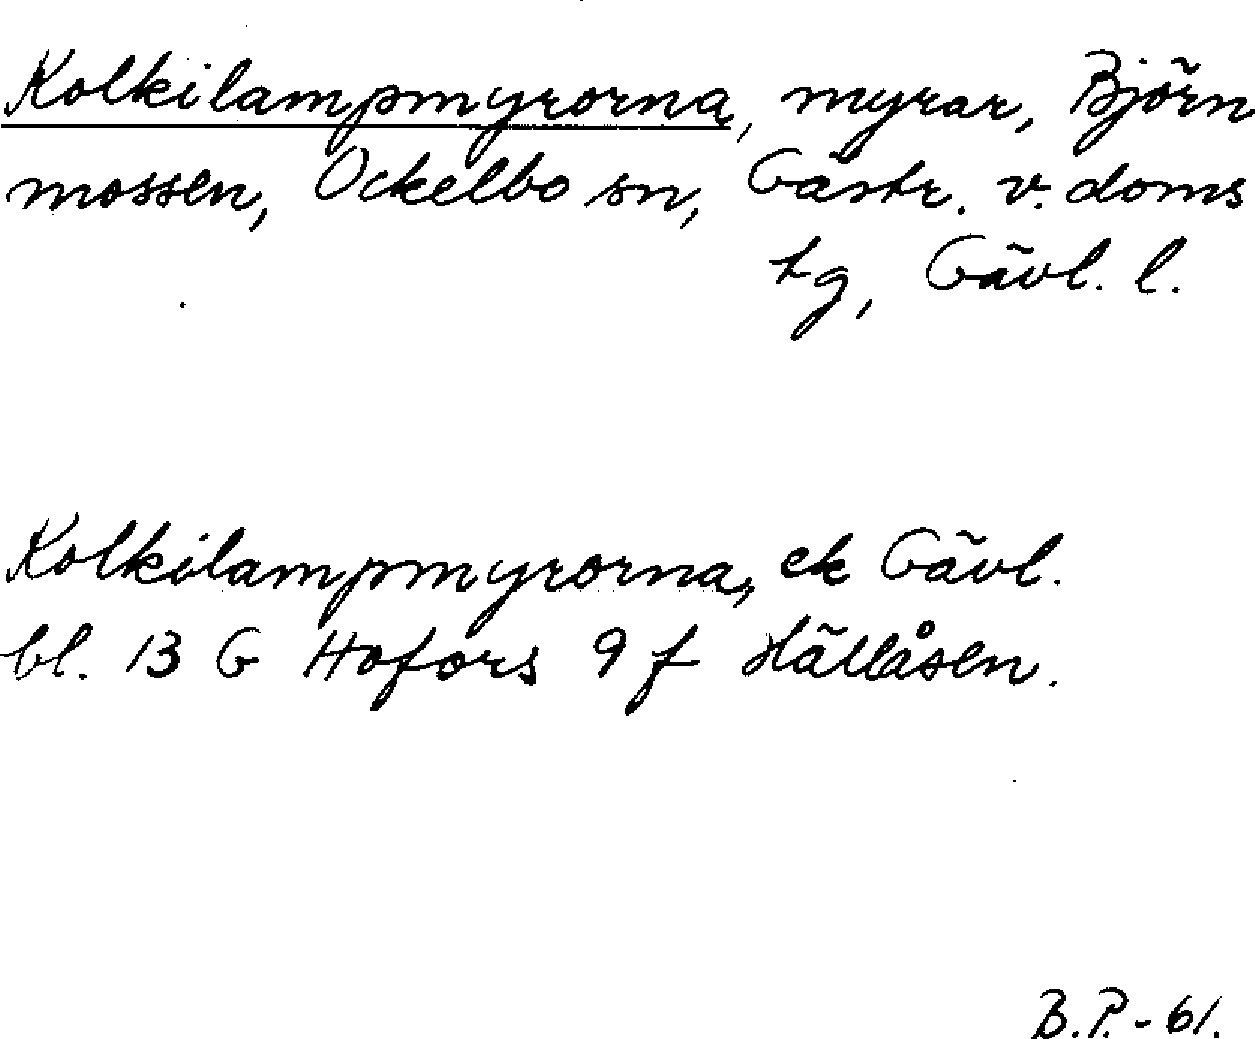 Kolkilampmyrorna, myrar, Björn
mossen, Ockelbo sn, Gästr. v. doms
tg, Gävl. l.
Kolkilampmyrorna, ek Gävl.
bl. 13 G Hofors 9 f Hällåsen.
B.P.-61.